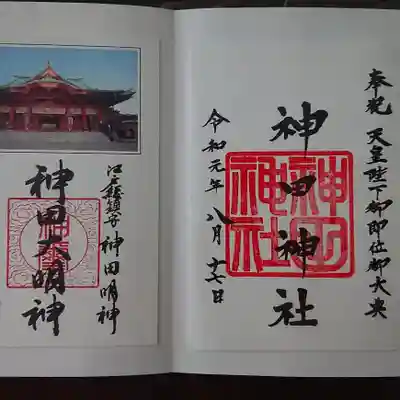 奉祝 天皇陛下御即位御大典
神田神社
令和元年八月十七日
神田神社
江戸総鎮守 神田明神
神田大明神